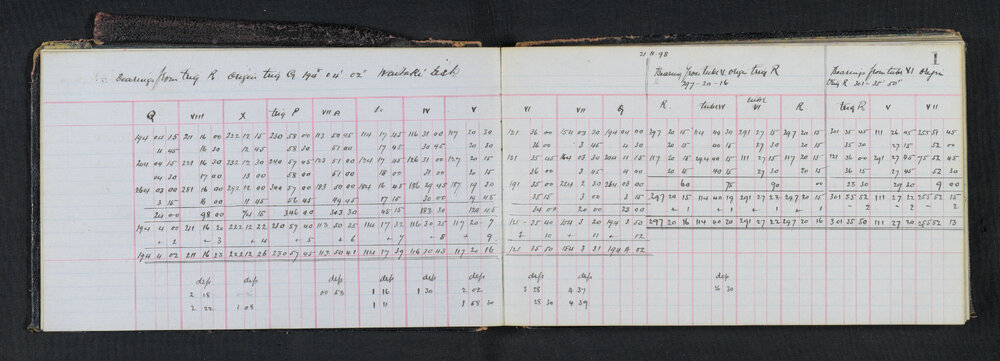 Bearings from trig R Origin trig Q 194° 04' 02" Waitaki Dist
Q VIII X trig P VII A IV V
194 04 15 211 16 00 222 12 15 230 58 00 113 50 45 114 17 45 116 31 00 117 20 30
11 45 16 30 12 45 58 30 51 00 17 45 30 45 20 30
204 04 15 221 16 30 232 12 30 240 57 45 123 51 00 124 17 45 126 31 00 127 20 15
04 30 17 00 13 00 58 00 51 00 18 00 30 45 20 15
264 03 00 281 16 00 292 12 00 300 57 00 183 50 00 184 16 45 186 29 45 187 19 30
3 15 16 00 11 45 56 45 49 45 17 15 30 00 19 45
24 00 98 00 74 15 346 00 303 30 45 15 183 30 120 45
194 4 00 211 16 20 222 12 22 230 57 40 113 50 35 114 17 32 116 30 35 117 20 7
+ 2 + 3 + 4 + 5 + 6 + 7 + 8 + 9
194 4 02 211 16 23 222 12 26 230 57 45 113 50 41 114 17 39 116 30 43 117 20 16
dep dep dep dep
2 18 00 53 1 16 1 30 2 02
2 22 1 08 1 11 1 58 30
VI VII Q
121 36 00 154 03 30 194 04 00
36 00 3 45 4 30
131 35 45 164 03 30 204 4 15
36 00 3 45 4 00
191 35 00 224 2 30 264 03 00
35 15 3 00 3 15
34 00 20 00 23 00
121 35 40 154 3 20 194 3 50
+ 10 + 11 + 12
121 35 50 154 3 31 194 4 02
dep dep
3 28 4 37
28 30 4 39
21 11 98
Bearing from tube V. origin trig R
297 - 20 - 16
R tube IV tube VI R
297 20 15 114 40 30 291 27 15 297 20 15
20 15 40 15 27 30 20 15
117 20 15 294 40 15 111 27 15 117 20 15
20 15 40 15 27 30 20 15
60 75 90 00
297 20 15 114 40 19 291 27 22 297 20 15
+ 1 + 1 + 1 + 1
297 20 16 114 40 20 291 27 23 297 20 16
dep
2 30
I
Bearings from tube VI Origin
trig R 301° - 35' 50"
trig R V VII
301 35 45 111 26 45 255 51 45
35 30 27 15 52 00
121 36 00 291 27 45 75 52 45
36 15 27 45 52 30
23 30 29 30 9 00
301 35 52 111 27 22 255 52 15
- 2 - 2 - 2
301 35 50 111 27 20 255 52 13